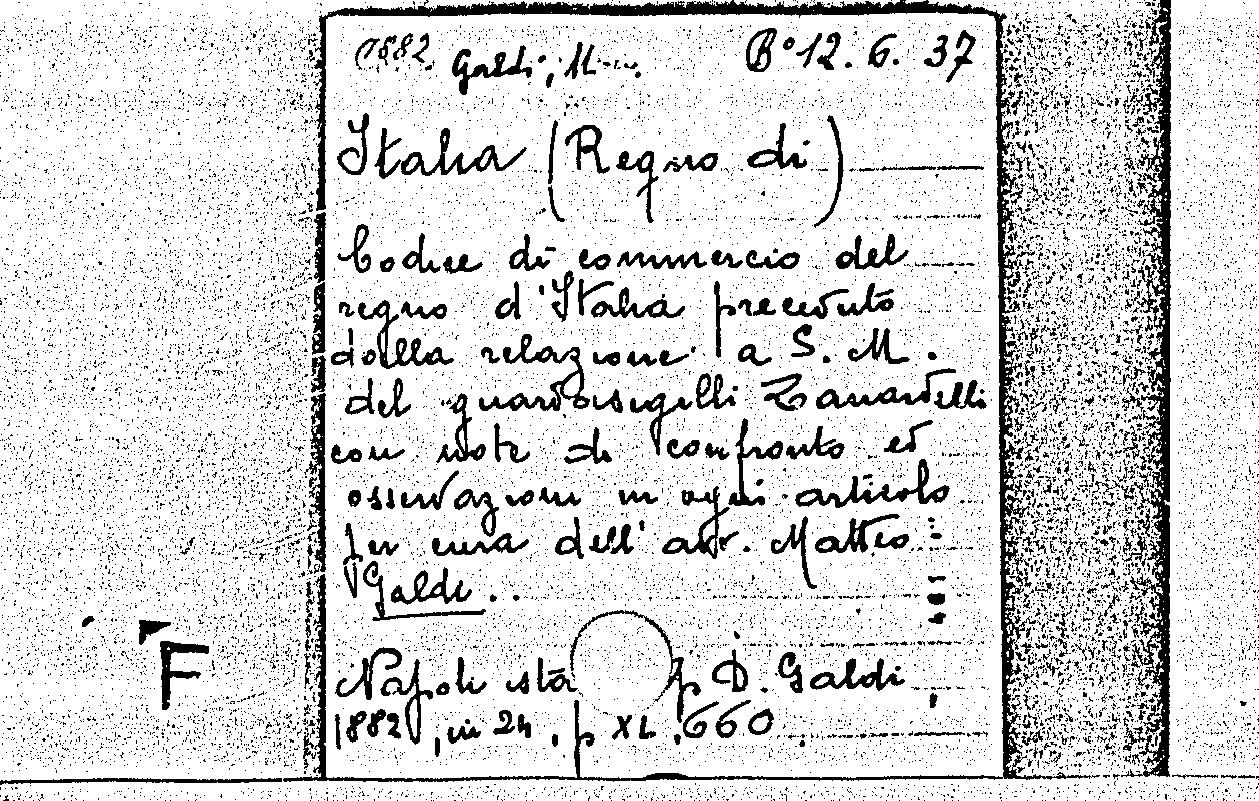 1882. Galdi, M.
B° 12. 6. 37
Italia (Regno di)
Codice di commercio del
regno d'Italia preceduto
dalla relazione a S. M.
del guardasigilli Zanardelli
con note di confronto ed
osservazioni in ogni articolo
per cura dell' avv. Matteo
Galdi..
Napoli sta p D. Galdi
1882, in 24, p XL. 660.
F